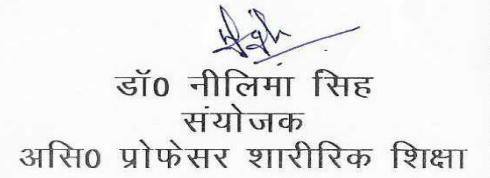 डॉ0 नीलिमा सिह
संयोजक
असि0 प्रोफेसर शारीरिक शिक्षा